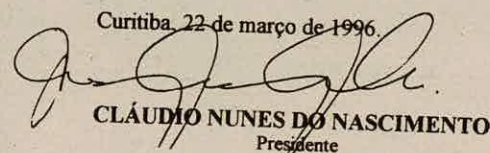 Curitiba, 22 de março de 1996.
CLÁUDIO NUNES DO NASCIMENTO
Presidente